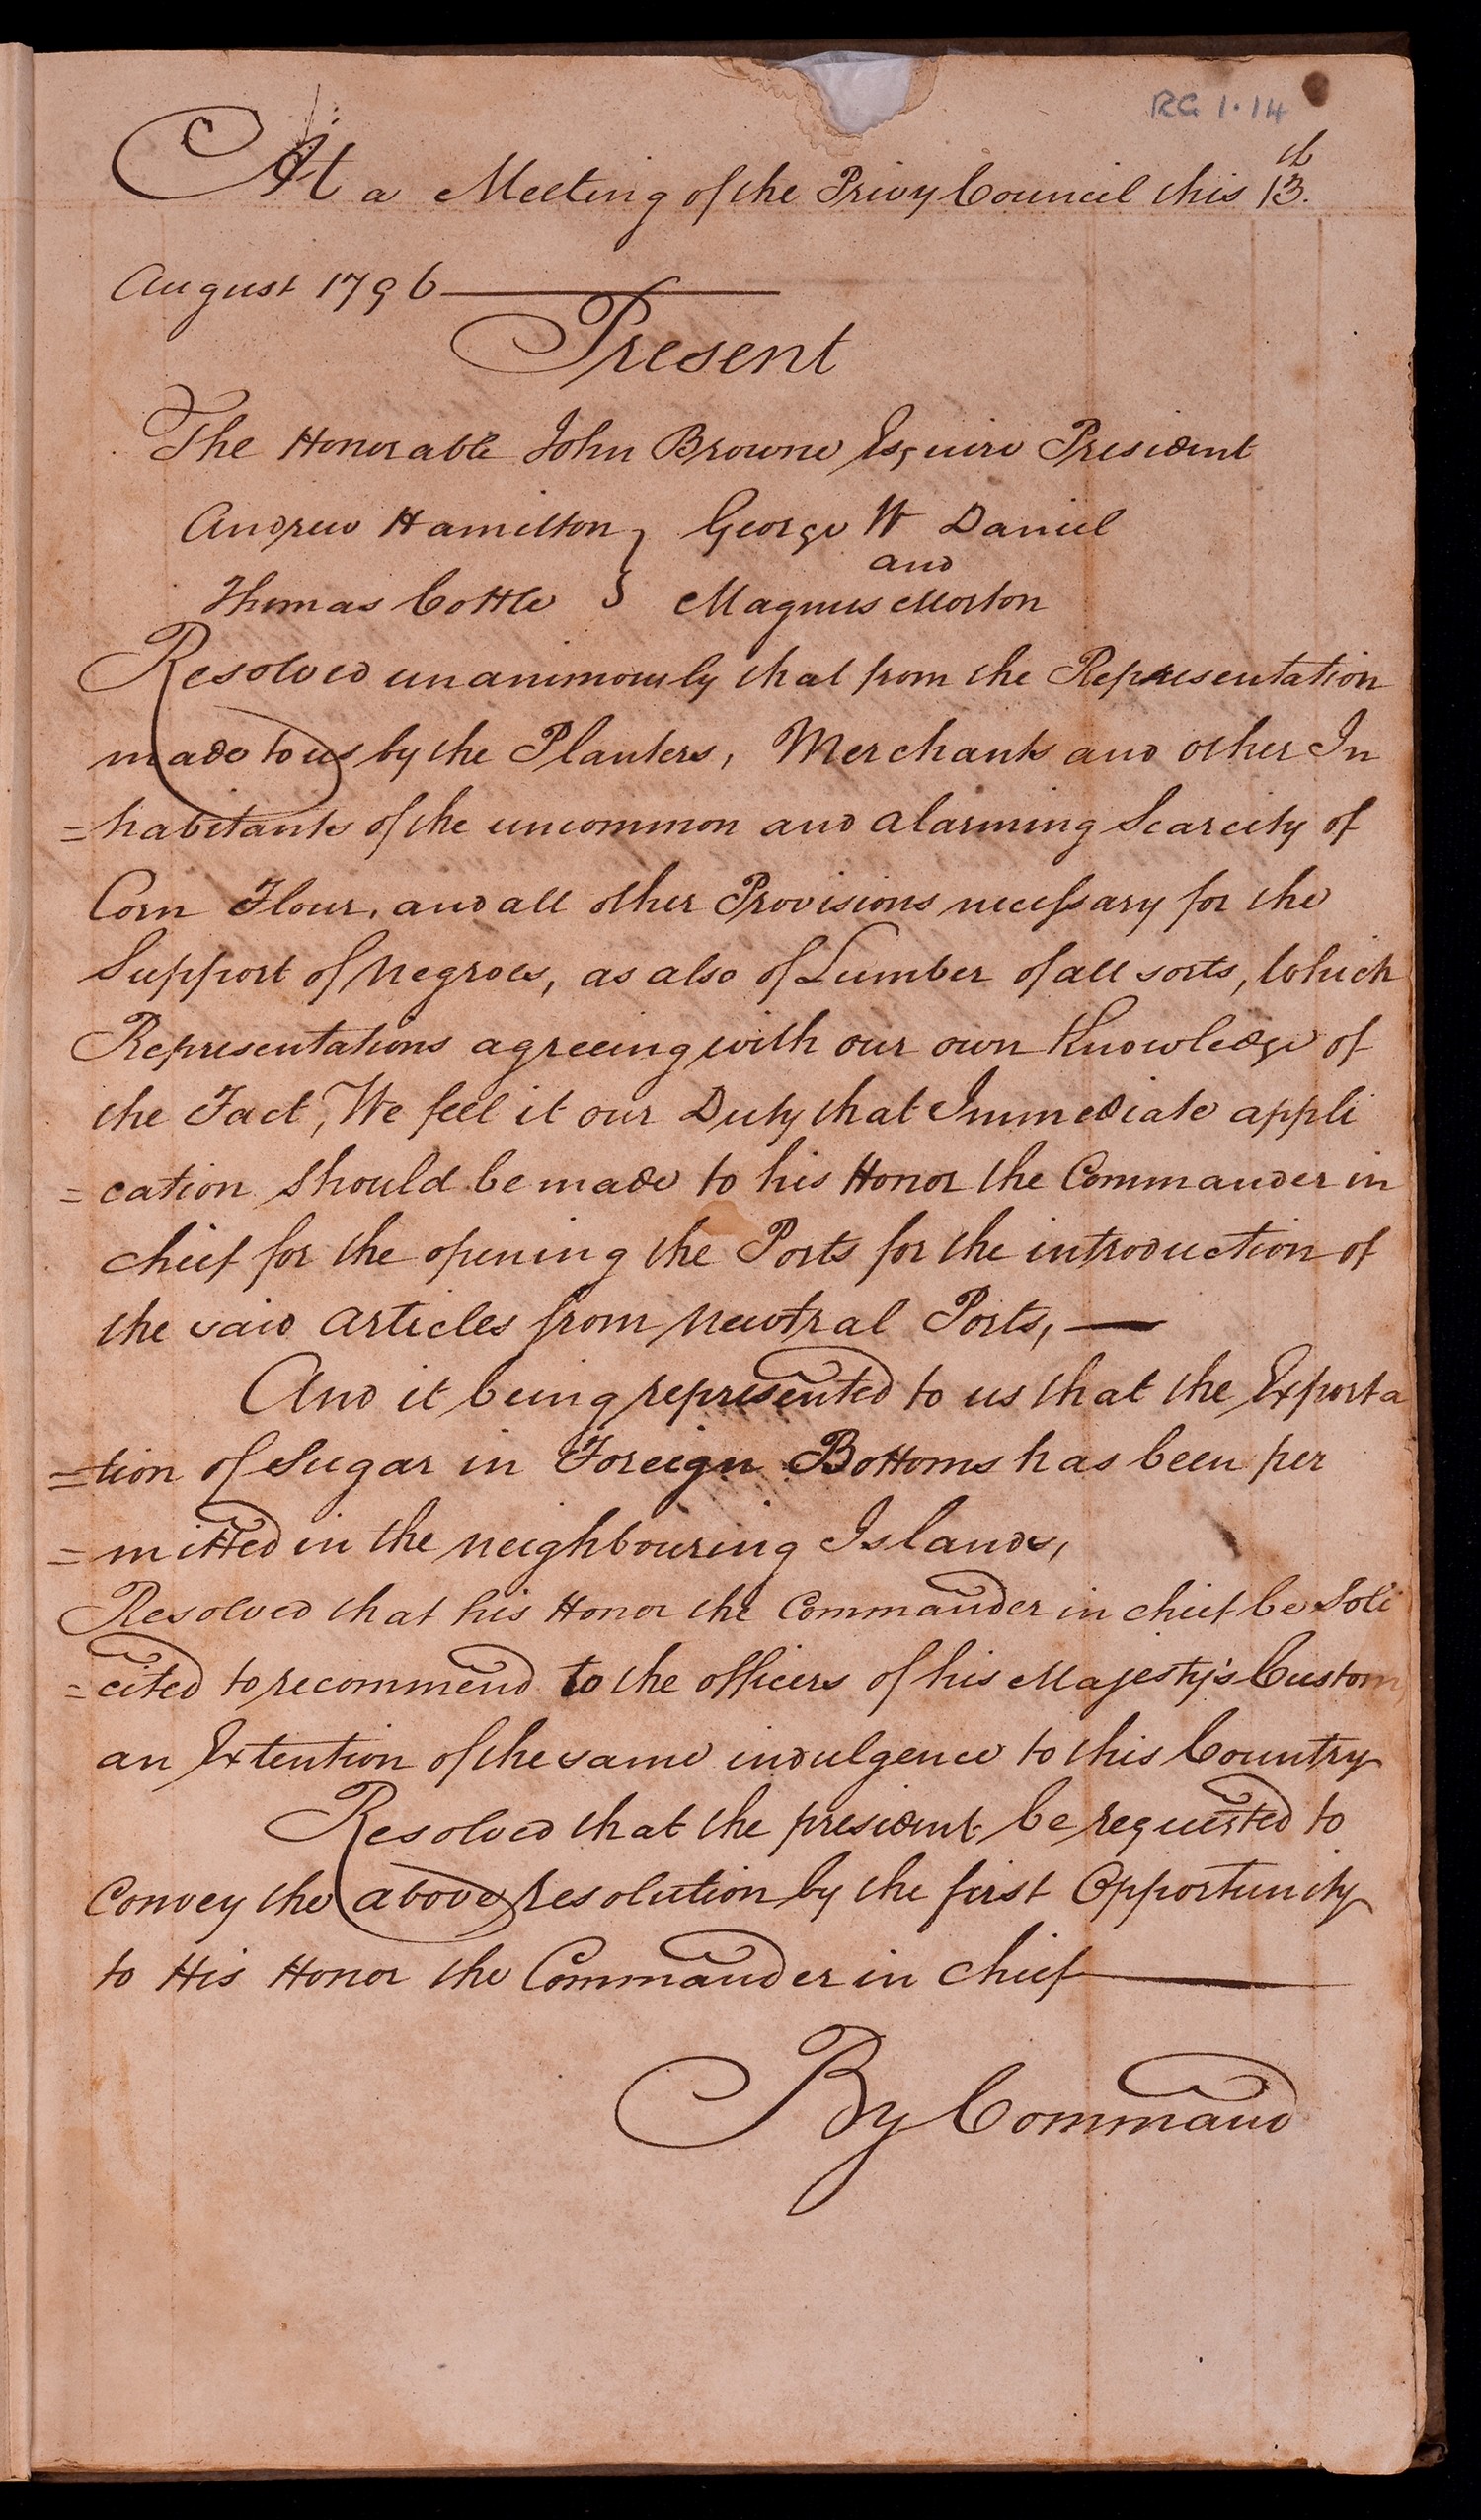 RG 1.14
At a Meeting of the Privy Council this 13.th
August 1796
Present
The Honorable John Browne Esquire President
Andrew Hamilton } George W Daniel
and
Thomas Cottle } Magnus Morton
Resolved unanimously that from the Representation
made to us by the Planters, Merchants and other In
=habitants of the uncommon and alarming Scarcity of
Corn Flour, and all other Provisions necessary for the
Support of Negroes, as also of Lumber of all sorts, Which
Representations agreeing with our own Knowledge of
the Fact, We feel it our Duty that Immediate appli
=cation should be made to his Honor the Commander in
chief for the opening the Ports for the introduction of
the said articles from Newtral Ports,
And it being represented to us that the Exporta
=tion of Sugar in Foreign Bottoms has been per
=mitted in the neighbouring Islands,
Resolved that his Honor the Commander in chief be Soli
=cited to recommend to the officers of his Majesty's Customs,
an Extention of the same indulgence to this Country
Resolved that the president be requested to
Convey the above resolution by the first Opportunity
to His Honor the Commander in Chief
By Command